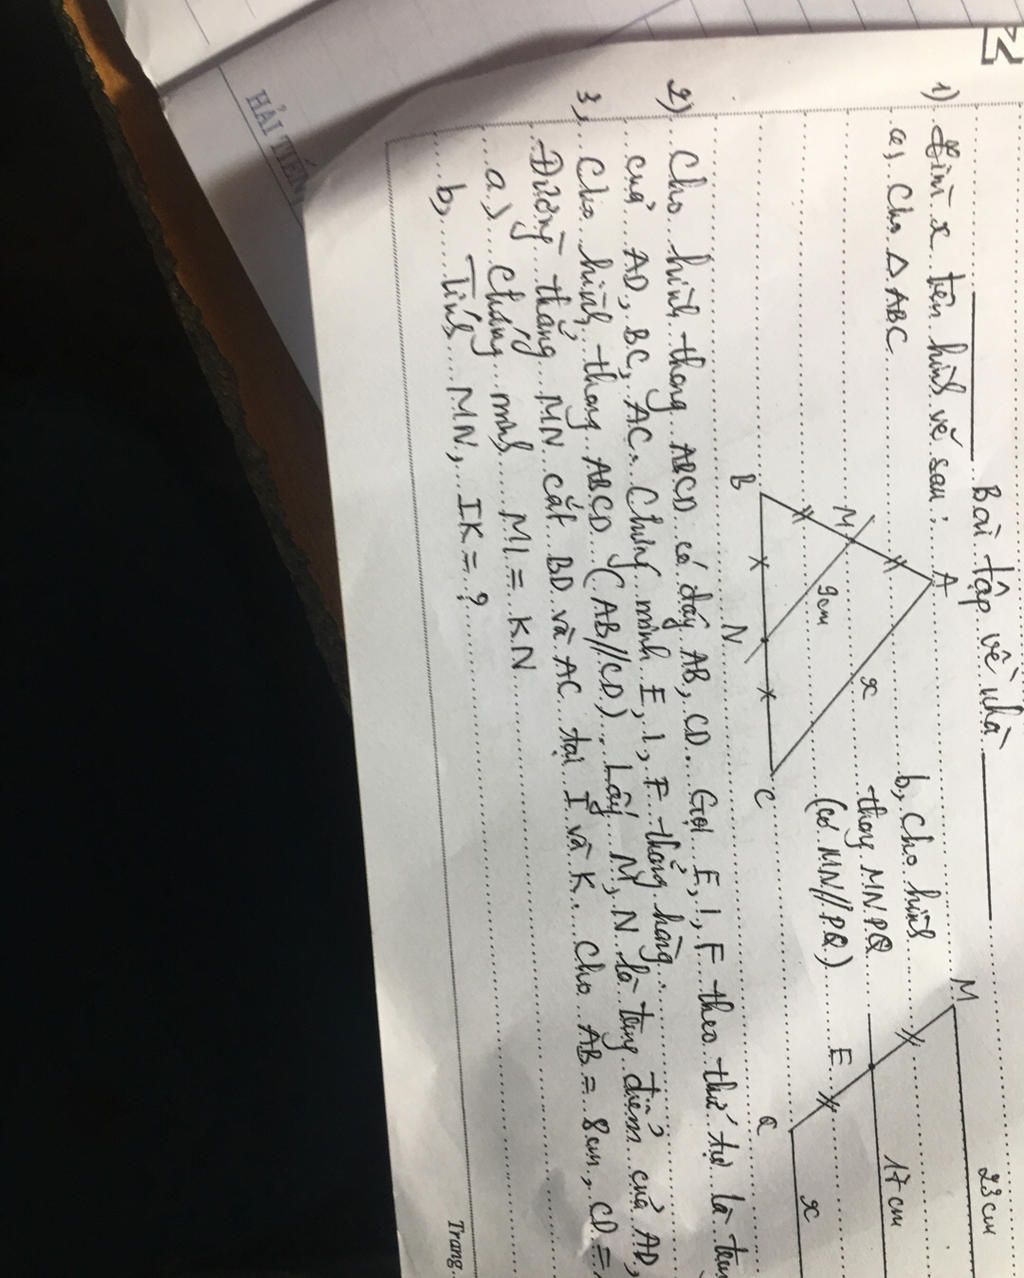 Bài tập về nhà
1) Tìm x trên hình vẽ sau:
a, Cho △ABC
b, Cho hình
thang MNPQ
(có MN//PQ)
A
M
9cm
x
B
N
C
M
23cm
E
17cm
Q
x
2) Cho hình thang ABCD có đáy AB, CD. Gọi E, I, F theo thứ tự là
của AD, BC, AC. Chứng minh E, I, F thẳng hàng.
3, Cho hình thang ABCD (AB//CD). Lấy M, N là trung điểm của AD,
Đường thẳng MN cắt BD và AC tại I và K. Cho AB = 8cm, CD =
a.) Chứng minh MI = KN
b, Tính MN, IK = ?
Trang
HẢI TIẾN